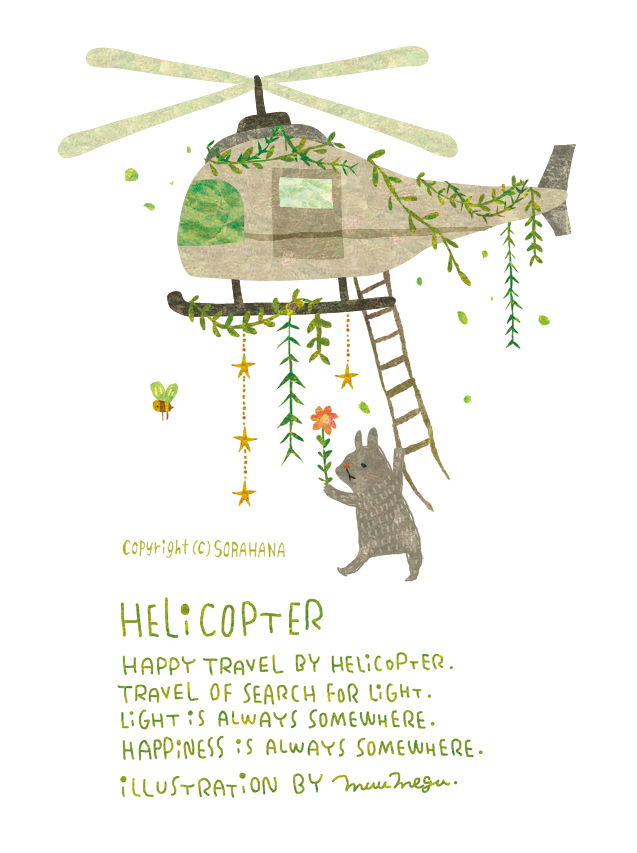 Copyright (c) SORAHANA
HELiCOPTER
HAPPY TRAVEL BY HELiCOPTER.
TRAVEL OF SEARCH FOR LiGHT.
LiGHT iS ALWAYS SOMEWHERE.
HAPPiNESS iS ALWAYS SOMEWHERE.
iLLUSTRATiON BY